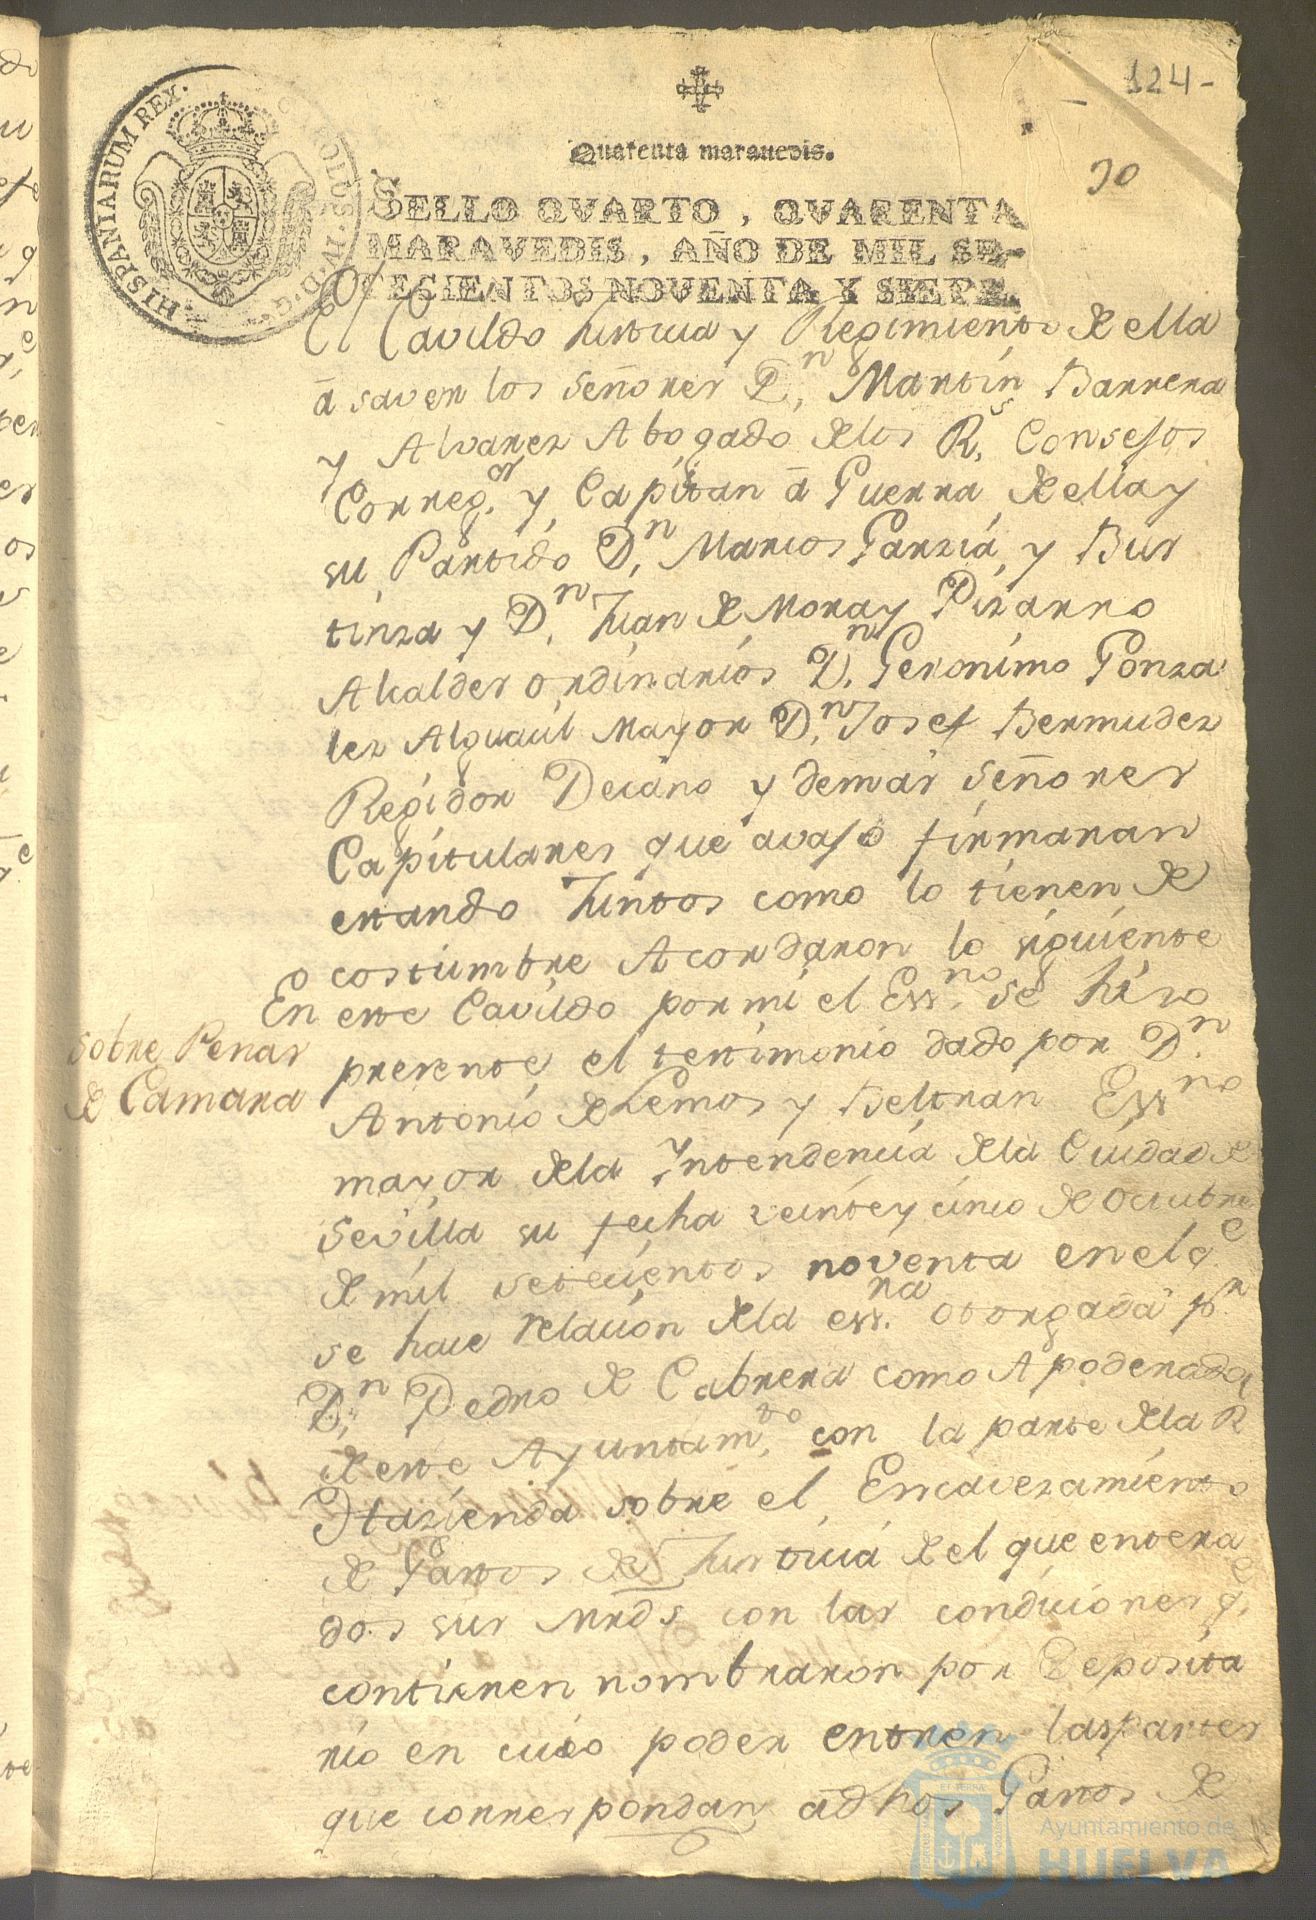 124-
30
Quarenta maravedis.
HISPANIARUM REX. CAROLUS. IV. D. G.
SELLO QVARTO, QVARENTA
MARAVEDIS, AÑO DE MIL SE-
TECIENTOS NOVENTA Y SIETE.
El Cavildo Justicia y Regimiento de ella
â saver los Señores Dn. Martin Barrera
y Alvarez Abogado delos Rs. Consejos
Correg.or y Capitan â Guerra de ella y
su Partido Dn. Marcos Garzia y Bur
tinza y Dn. Juan de Mora y Pizarro
Alcaldes ordinarios Dn. Geronimo Gonza
lez Alguacil Mayor Dn. Josef Bermudez
Regidor Decano y demas Señores
Capitulares que avajo firmaran
estando Juntos como lo tienen de
costumbre Acordaron lo siguiente
En este Cavildo por mi el Essno. se hizo
sobre Penas
de Camara
presente el testimonio dado por Dn.
Antonio de Lemos y Beltran Essno
mayor dela Yntendencia dela Ciudad de
Sevilla su fecha veinte y cinco de Octubre
de mil setecientos noventa en el qe
se hace relacion dela essra. otorgada pr
Dn. Pedro de Cabrera como Apoderado
de este Ayuntamto. con la parte dela R
Hazienda sobre el Encavezamiento
de Gastos de Justicia de el que entera
dos sus Mrds con las condiciones qe.
contienen nombraron por Deposita
rio en cuio poder entren las partes
que correspondan adhos Gastos de
Ayuntamiento de
HUELVA